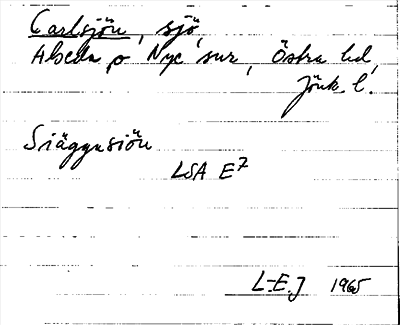 Carlsjön, sjö,
Alseda o Nye s:nr, Östra hd,
Jönk. l.
Siäggnsiön
LSA E7
L-E.J 1965